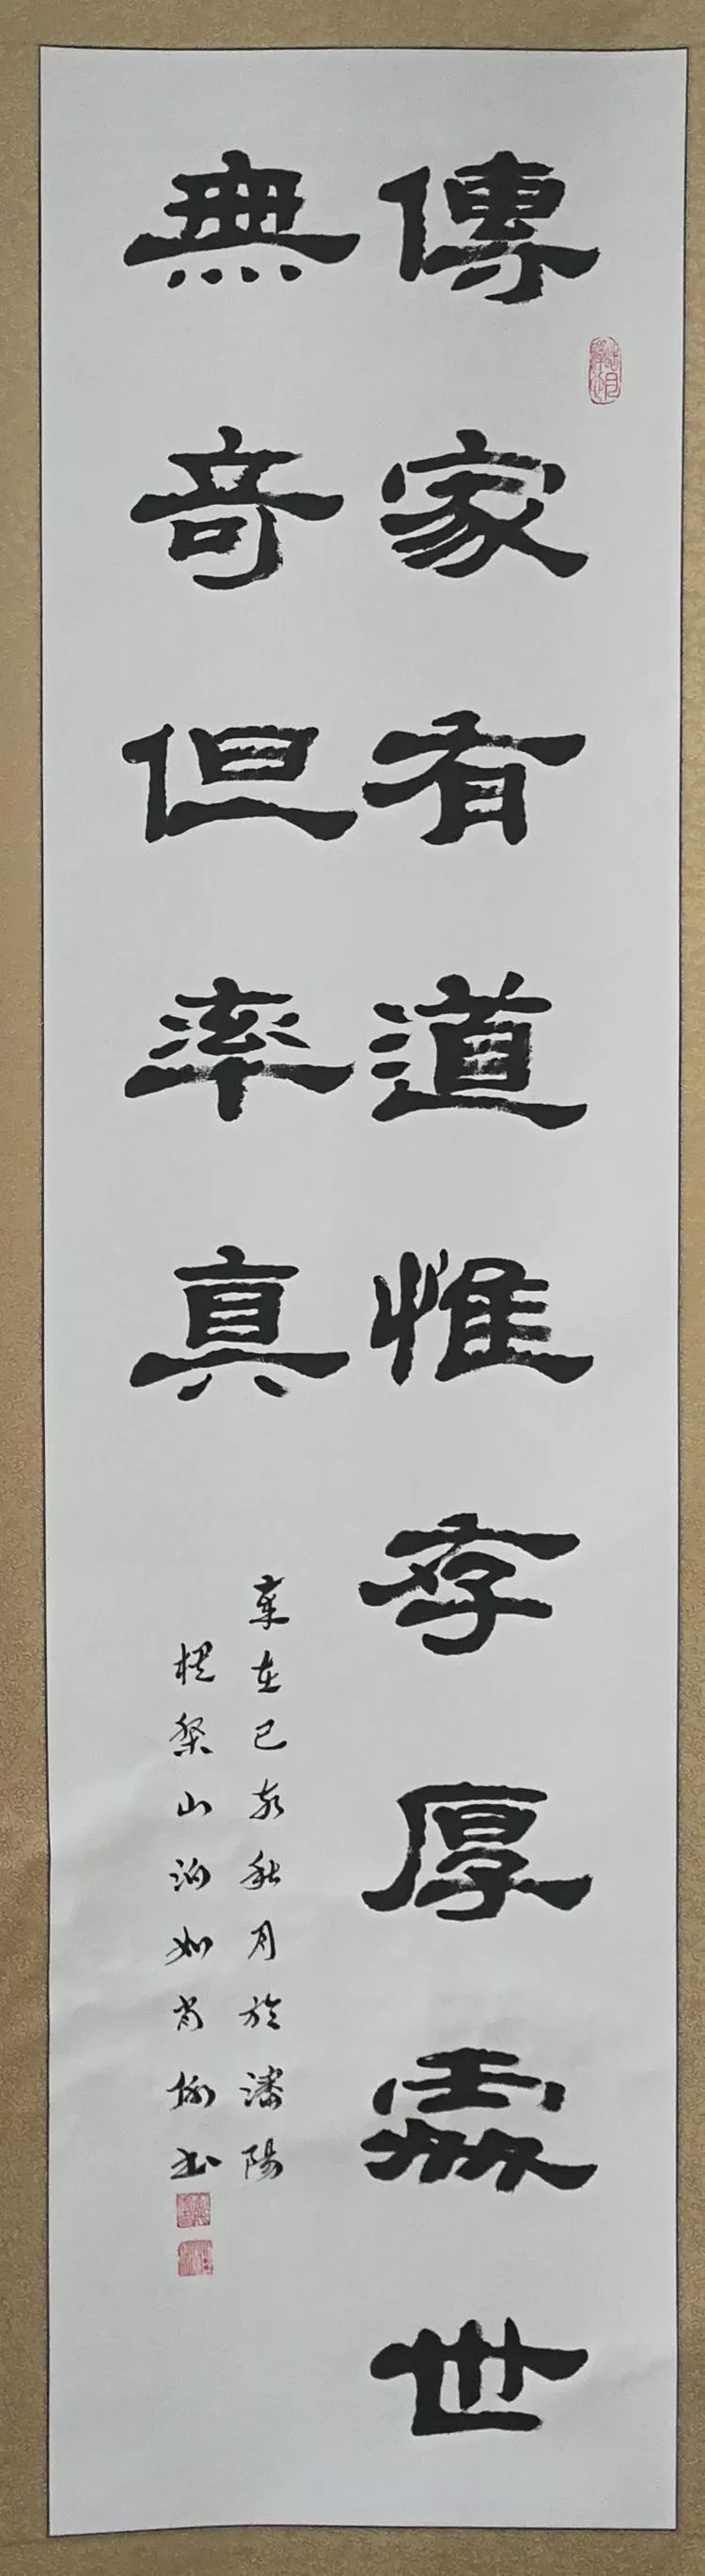 傳家有道惟存厚處世
無奇但率真
歲在己亥秋月於瀋陽
棋槃山泊如肖書